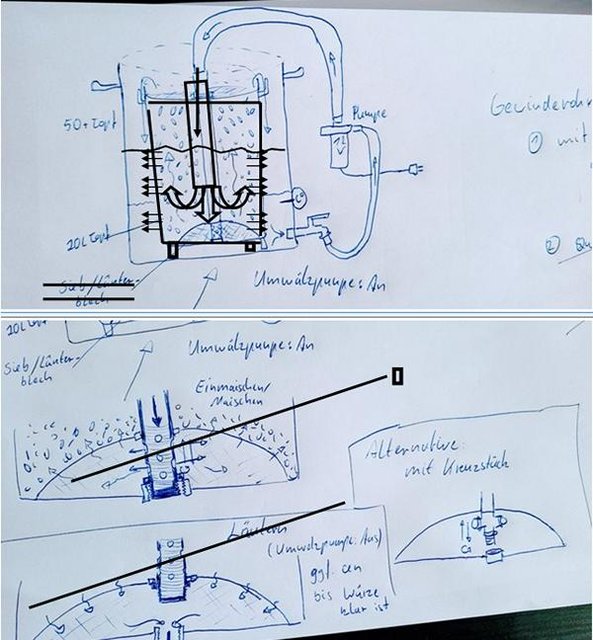 Pumpe
50L Topf
Gewinderohr
① mit
20L Topf
②
Sieb/Läuter-
blech
Umwälzpumpe: An
20L Topf
Sieb/Läuter-
blech
Umwälzpumpe: An
Einmaischen/
Maischen
Alternative:
mit Kreuzstück
Läutern
(Umwälzpumpe: Aus)
ggf. an
bis Würze
klar ist